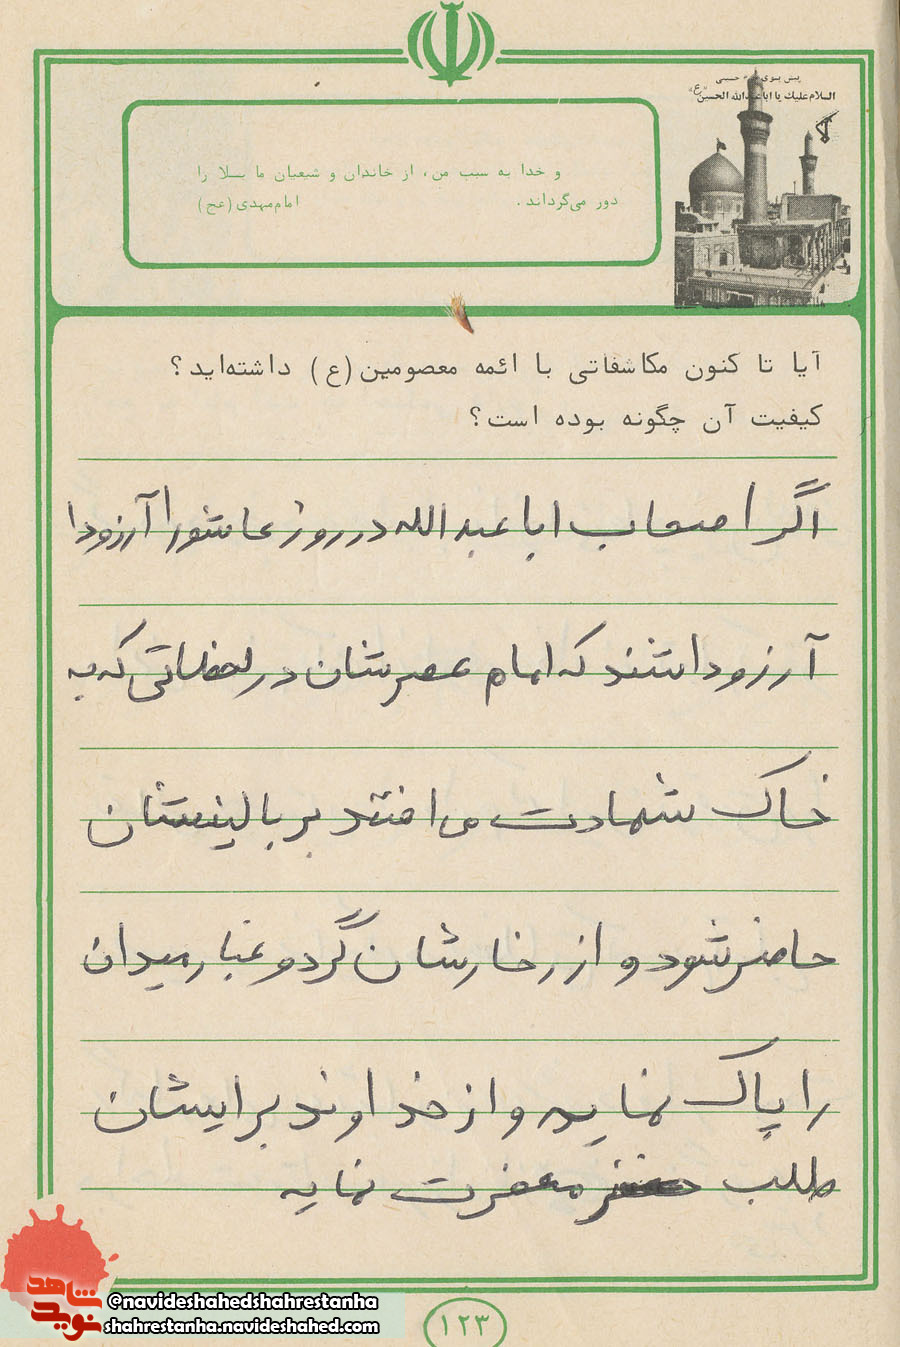 پیش بسوی حرم حسینی
السلام علیك یا اباعبدالله الحسین «ع»
و خدا به سبب من، از خاندان و شیعیان ما بلا را
دور می‌گرداند. امام‌مهدی (عج)
آیا تا کنون مکاشفاتی با ائمه معصومین (ع) داشته‌اید؟
کیفیت آن چگونه بوده است؟
اگر اصحاب ابا عبدالله در روز عاشورا آرزو دا
آرزو داشتند که امام عصرشان در لحظاتی که به
خاک شهادت می افتند بر بالینشان
حاضر شود و از رخارشان گرد و غبار میدان
را پاک نماید و از خداوند برایشان
طلب مغفرت نماید
شاهد
نوید
©navideshahedshahrestanha
shahrestanha.navideshahed.com
۱۲۳